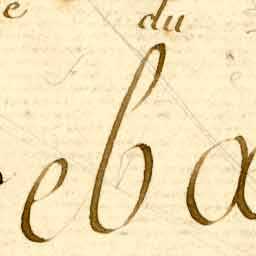 e du
eba